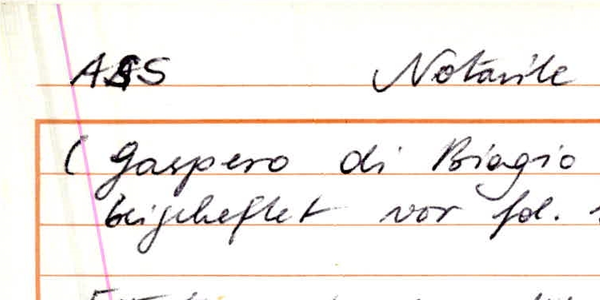 ASS Notarile
( Gaspero di Biagio
beigeheftet vor fol.